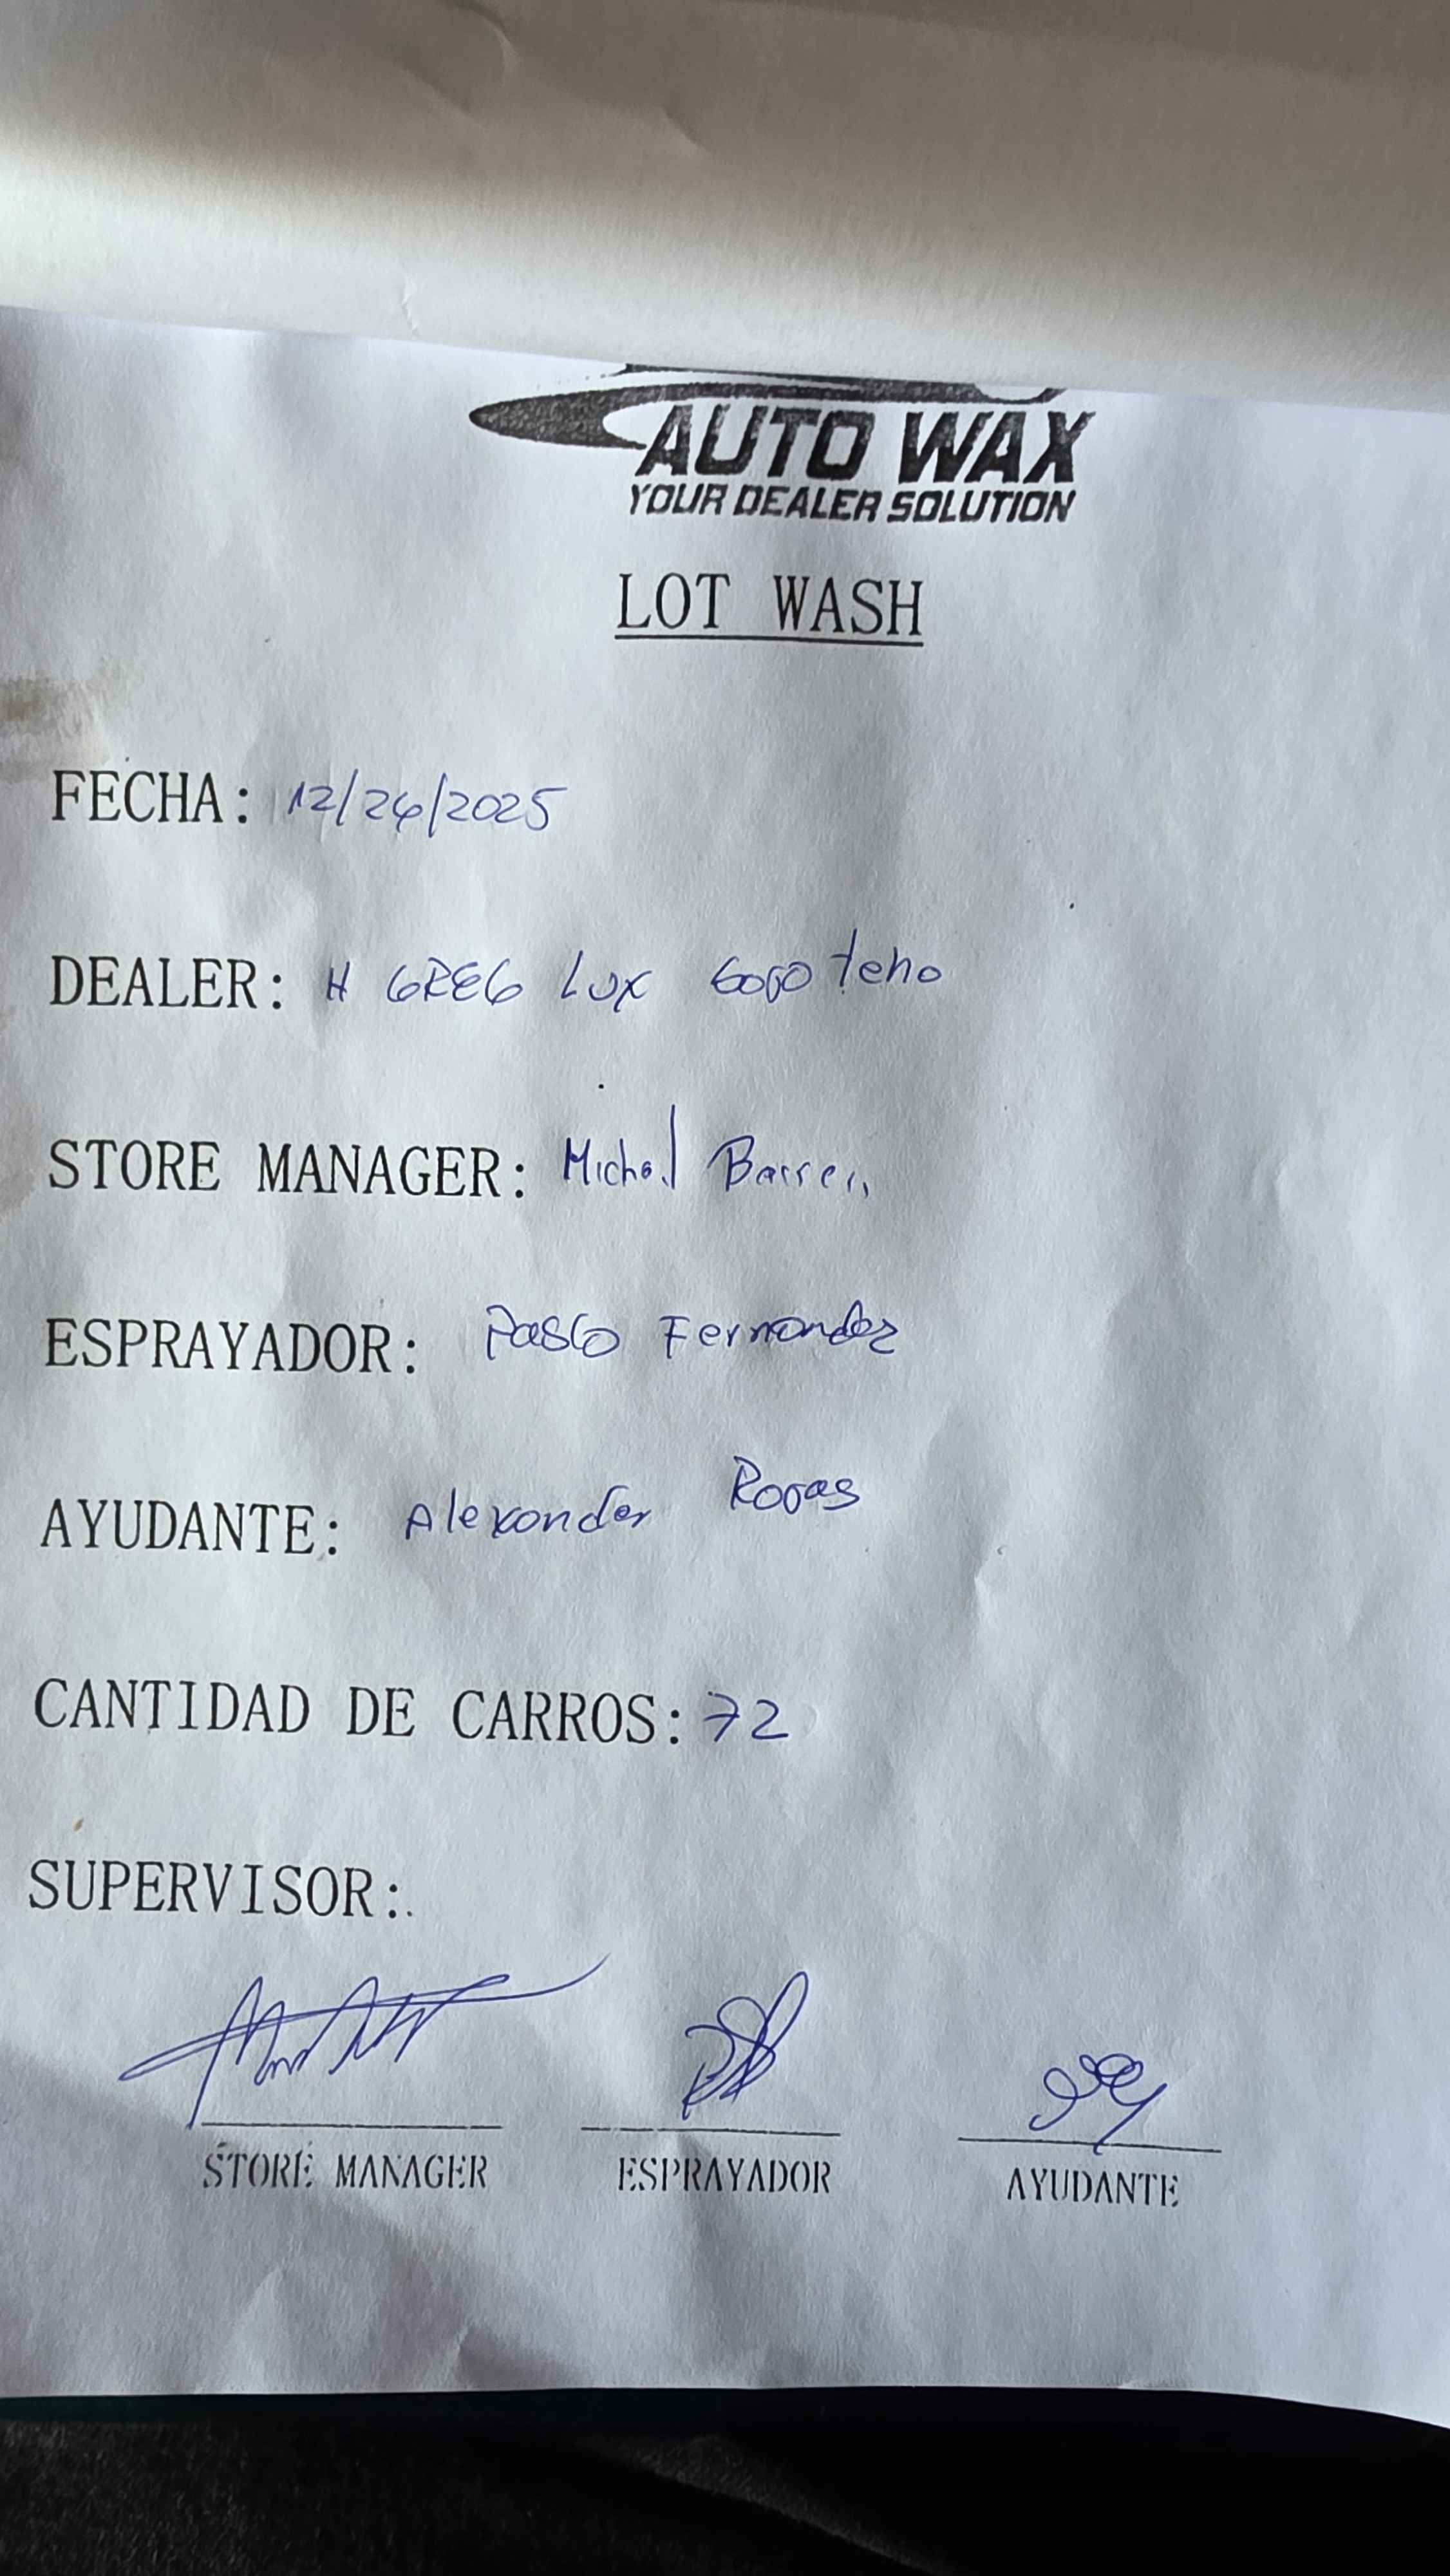 AUTO WAX
YOUR DEALER SOLUTION
LOT WASH
FECHA: 12/26/2025
DEALER: H GREG LUX
STORE MANAGER: Michael
ESPRAYADOR: Pablo Fernandez
AYUDANTE: Alexander Rojas
CANTIDAD DE CARROS: 72
SUPERVISOR:
STORE MANAGER ESPRAYADOR AYUDANTE